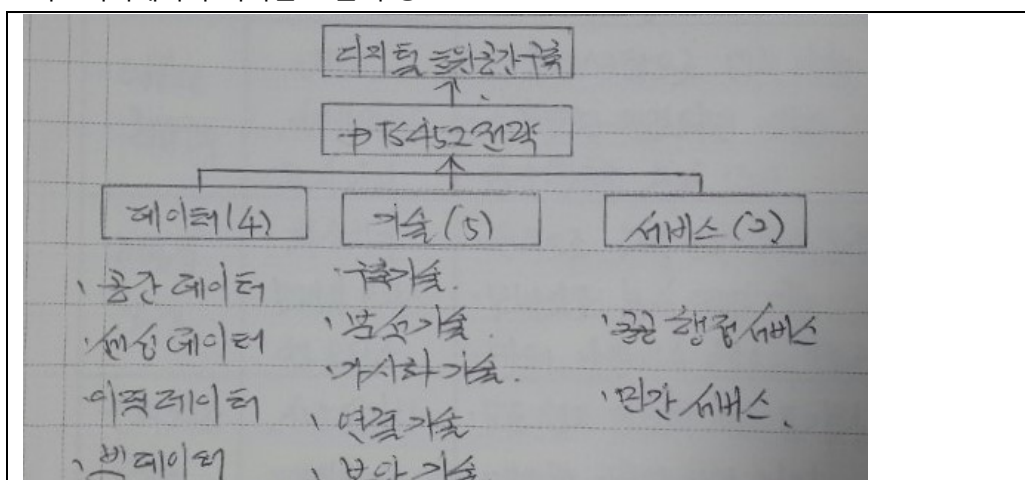 디지털 트윈공간구축
DTS452전략
데이터(4) 기술(5) 서비스(2)
공간 데이터
센싱 데이터
이력데이터
빅데이터
구축기술.
분석기술.
가시화기술.
연결기술
보안기술
공공행정서비스
민간서비스.